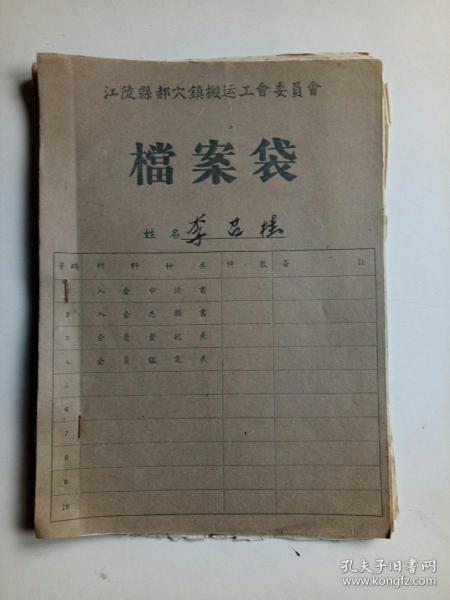 江陵縣郝穴鎮搬运工會委員會
檔案袋
姓名 李吕桂
号码 材料种类 件数 备註
1 入会申请書
2 入会志願書
3 会員登記表
4 会員鑑定表
5
6
7
8
9
10
孔夫子旧书网
www.kongfz.com